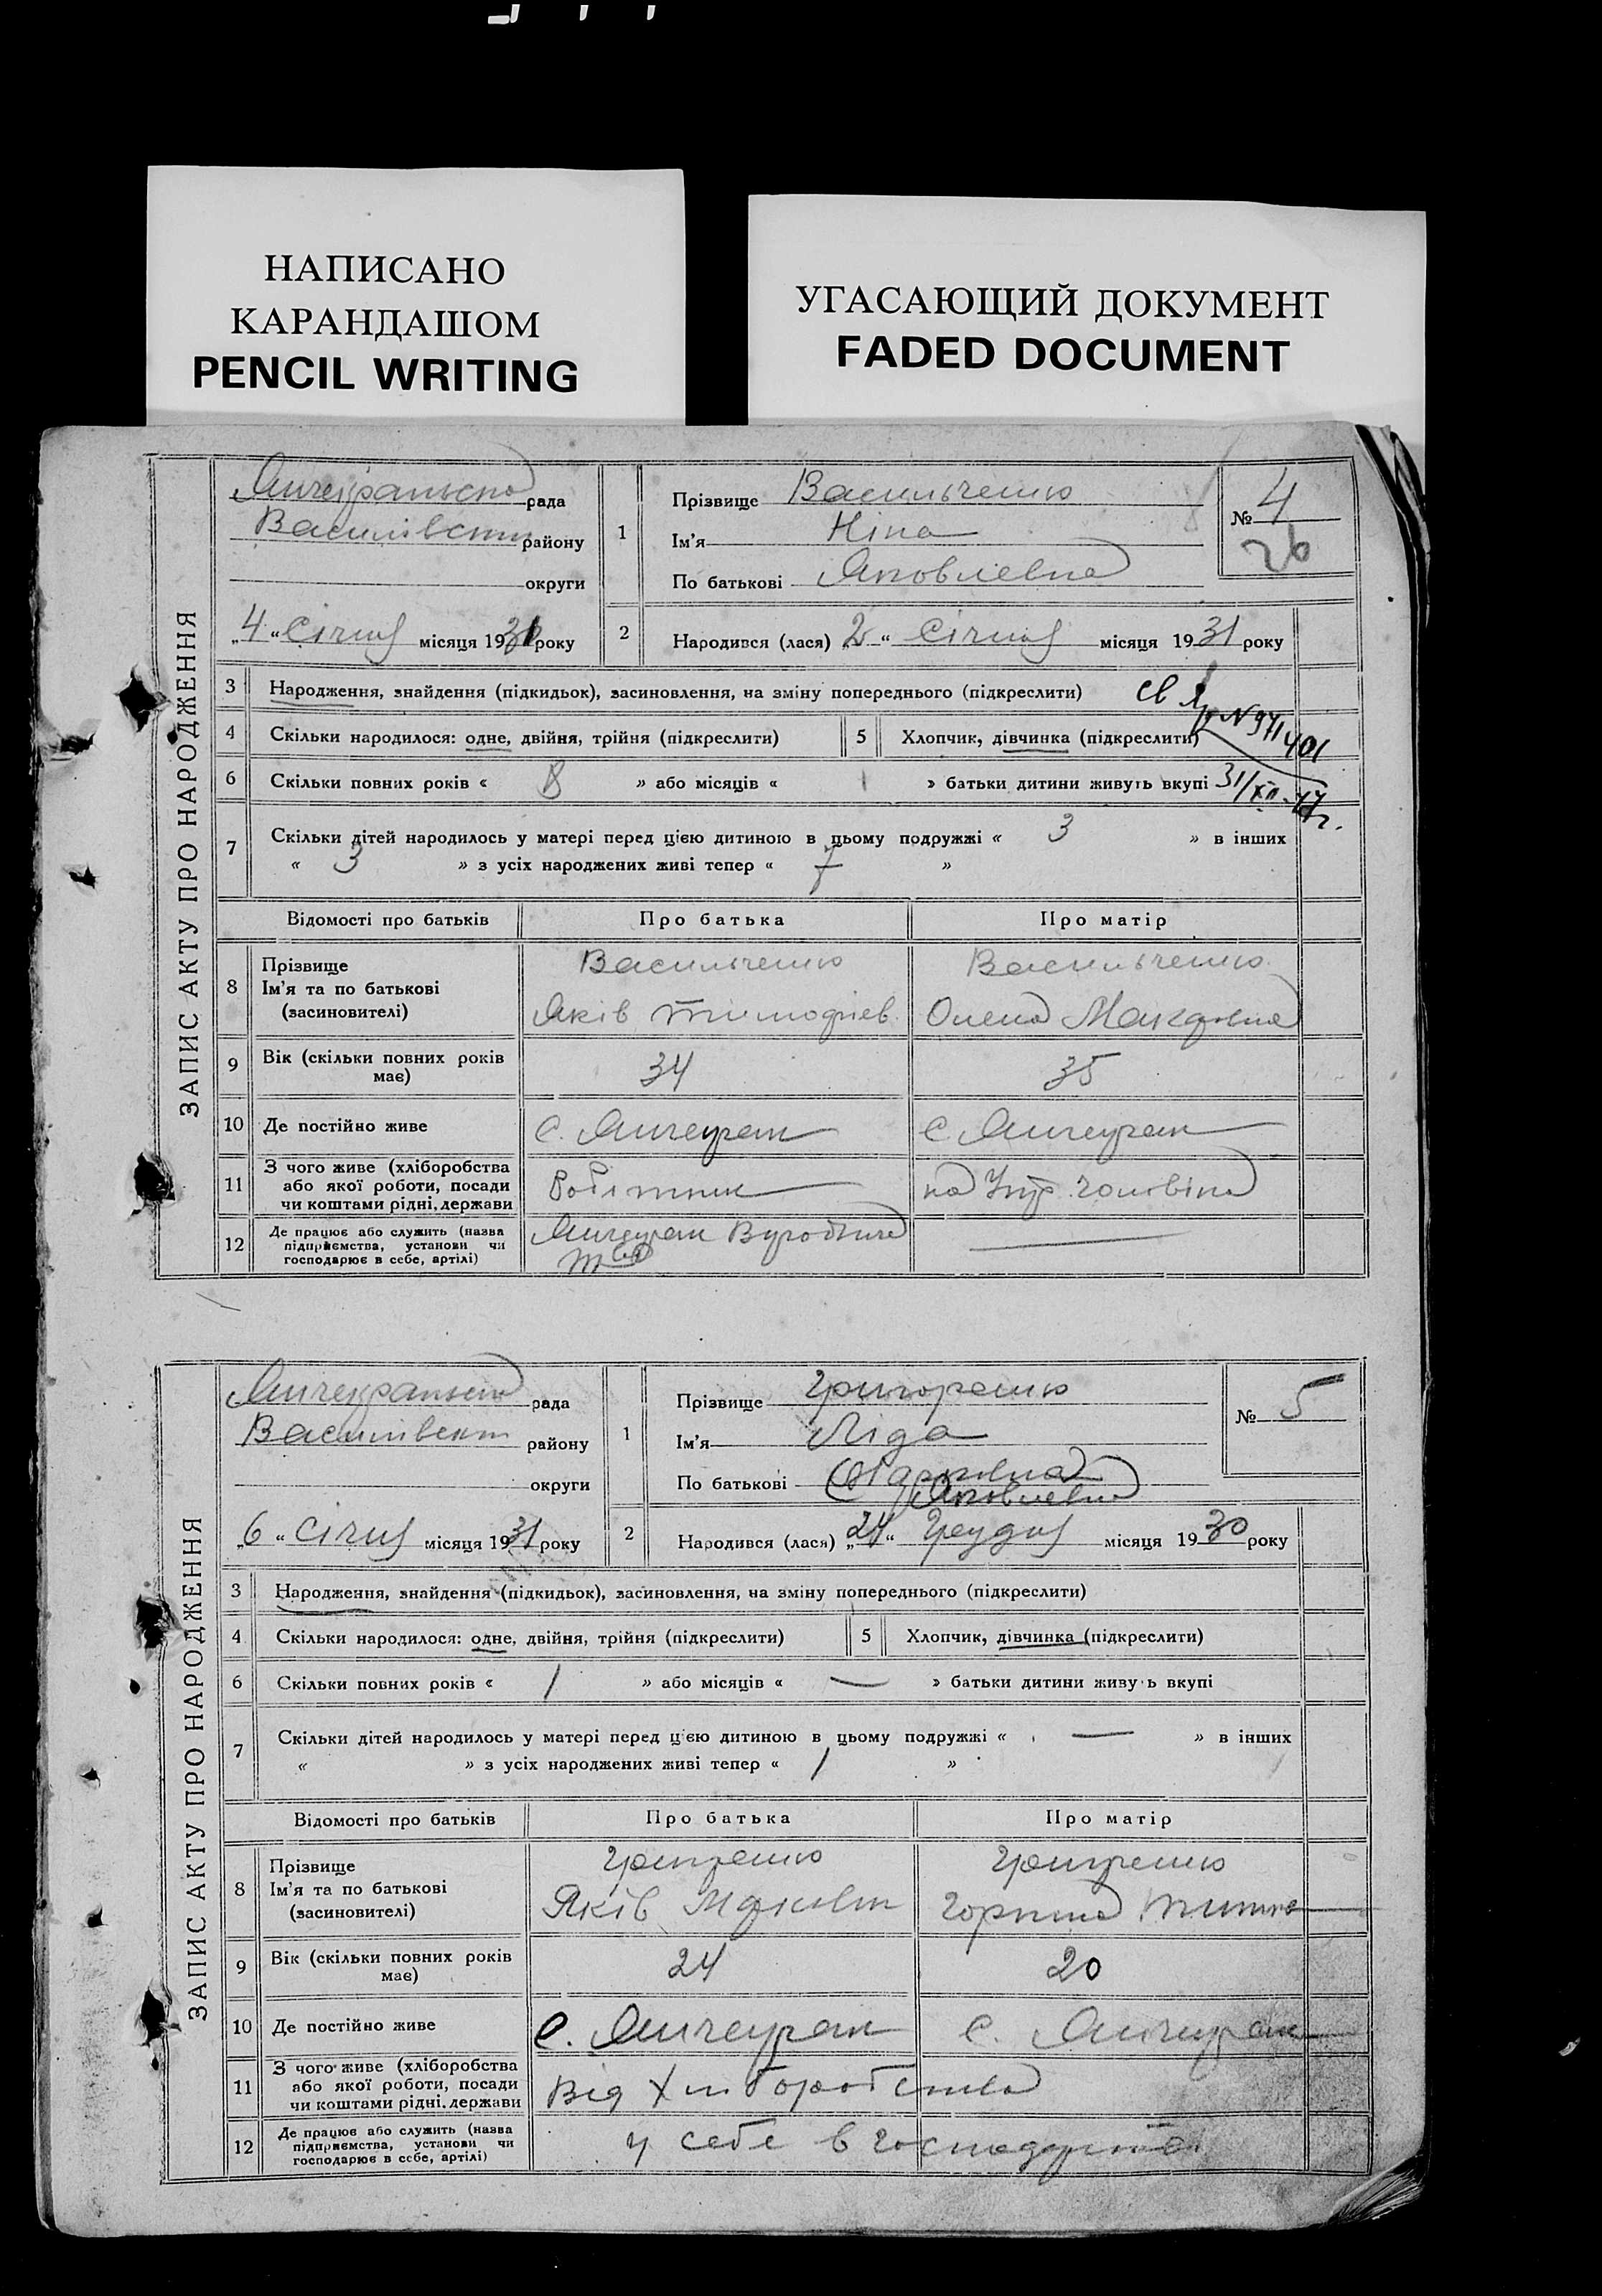 НАПИСАНО
КАРАНДАШОМ
PENCIL WRITING
УГАСАЮЩИЙ ДОКУМЕНТ
FADED DOCUMENT
ЗАПИС АКТУ ПРО НАРОДЖЕННЯ
рада
Василівськ району
округи
„4“ Січня місяця 1931 року
1 Прізвище Васильченко
Ім'я Ніна
По батькові Яковлевна
№ 4
26
2 Народився (лася) 2 “ Січня місяця 1931 року
3 Народження, знайдення (підкидьок), засиновлення, на зміну попереднього (підкреслити)
4 Скільки народилося: одне, двійня, трійня (підкреслити) 5 Хлопчик, дівчинка (підкреслити)
№ 971401
6 Скільки повних років « » або місяців « » батьки дитини живуть вкупі
31/XII-47г.
7 Скільки дітей народилось у матері перед цією дитиною в цьому подружжі « 3 » в інших
« 3 » з усіх народжених живі тепер « 7 »
Відомості про батьків Про батька Про матір
8 Прізвище Ім'я та по батькові (засиновителі) Васильченко Васильченко
Яків Тимофієв. Олена
9 Вік (скільки повних років має) 34 35
10 Де постійно живе с. Янчекрак с. Янчекрак
11 З чого живе (хліборобства або якої роботи, посади чи коштами рідні, держави Робітник на Утр. чоловіка
12 Де працює або служить (назва підприємства, установи чи господарює в себе, артілі) Янчекрак
ЗАПИС АКТУ ПРО НАРОДЖЕННЯ
рада
Василівськ району
округи
„6“ Січня місяця 1931 року
1 Прізвище Григоренко
Ім'я Ліда
По батькові
Яковлевна
№ 5
2 Народився (лася) „24“ Грудня місяця 1930 року
3 Народження, знайдення (підкидьок), засиновлення, на зміну попереднього (підкреслити)
4 Скільки народилося: одне, двійня, трійня (підкреслити) 5 Хлопчик, дівчинка (підкреслити)
6 Скільки повних років « 1 » або місяців « — » батьки дитини живуть вкупі
7 Скільки дітей народилось у матері перед цією дитиною в цьому подружжі « — » в інших
« » з усіх народжених живі тепер « 1 »
Відомості про батьків Про батька Про матір
8 Прізвище Ім'я та по батькові (засиновителі) Григоренко Григоренко
Яків Горпина
9 Вік (скільки повних років має) 24 20
10 Де постійно живе с. Янчекрак с. Янчекрак
11 З чого живе (хліборобства або якої роботи, посади чи коштами рідні, держави Від Хліборобства
12 Де працює або служить (назва підприємства, установи чи господарює в себе, артілі) у себе в господарстві